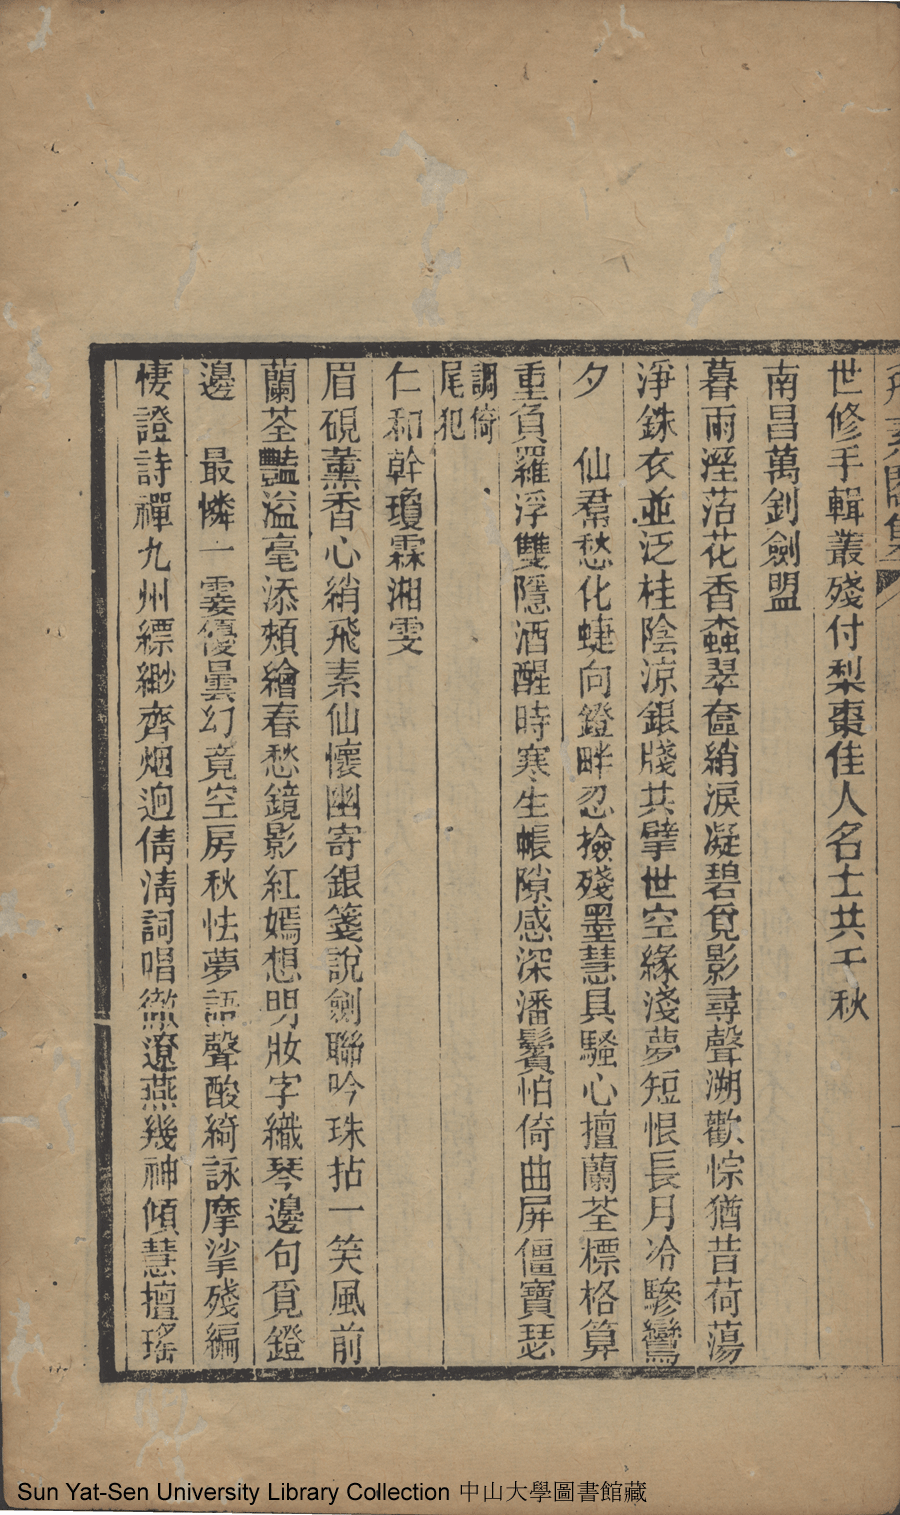 世修手輯叢殘付梨棗佳人名士共千秋
南昌萬釗劍盟
暮雨溼萡花香螙翠奩綃淚凝碧覓影尋聲溯歡悰猶昔荷蕩
淨銖衣並泛桂陰涼銀牋共擘世空緣淺夢短恨長月冷驂鸞
夕　仙羣愁化蜨向鐙畔忍撿殘墨慧具騷心擅蘭荃標格算
重負羅浮雙隱酒醒時寒生帳隙感深潘鬢怕倚曲屏僵寶瑟
調倚
尾犯
仁和幹瓊霖湘雯
眉硯薰香心綃飛素仙懷幽寄銀箋說劍聯吟珠拈一笑風前
蘭荃豔溢毫添頰繪春愁鏡影紅嫣想明妝字織琴邊句覓鐙
邊　最憐一霎優曇幻竟空房秋怯夢語聲酸綺詠摩挲殘編
悽證詩禪九州縹緲齊烟迥倩淸詞唱徹遼燕幾神傾慧擅瑤
Sun Yat-Sen University Library Collection 中山大學圖書館藏